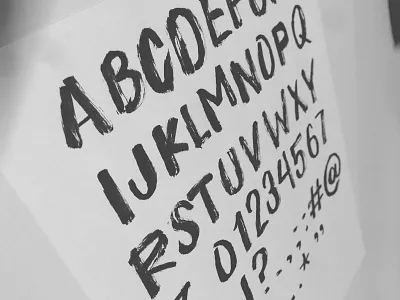 ABCDEFG
IJKLMNOPQ
RSTUVWXY
01234567
!?.,:;#@